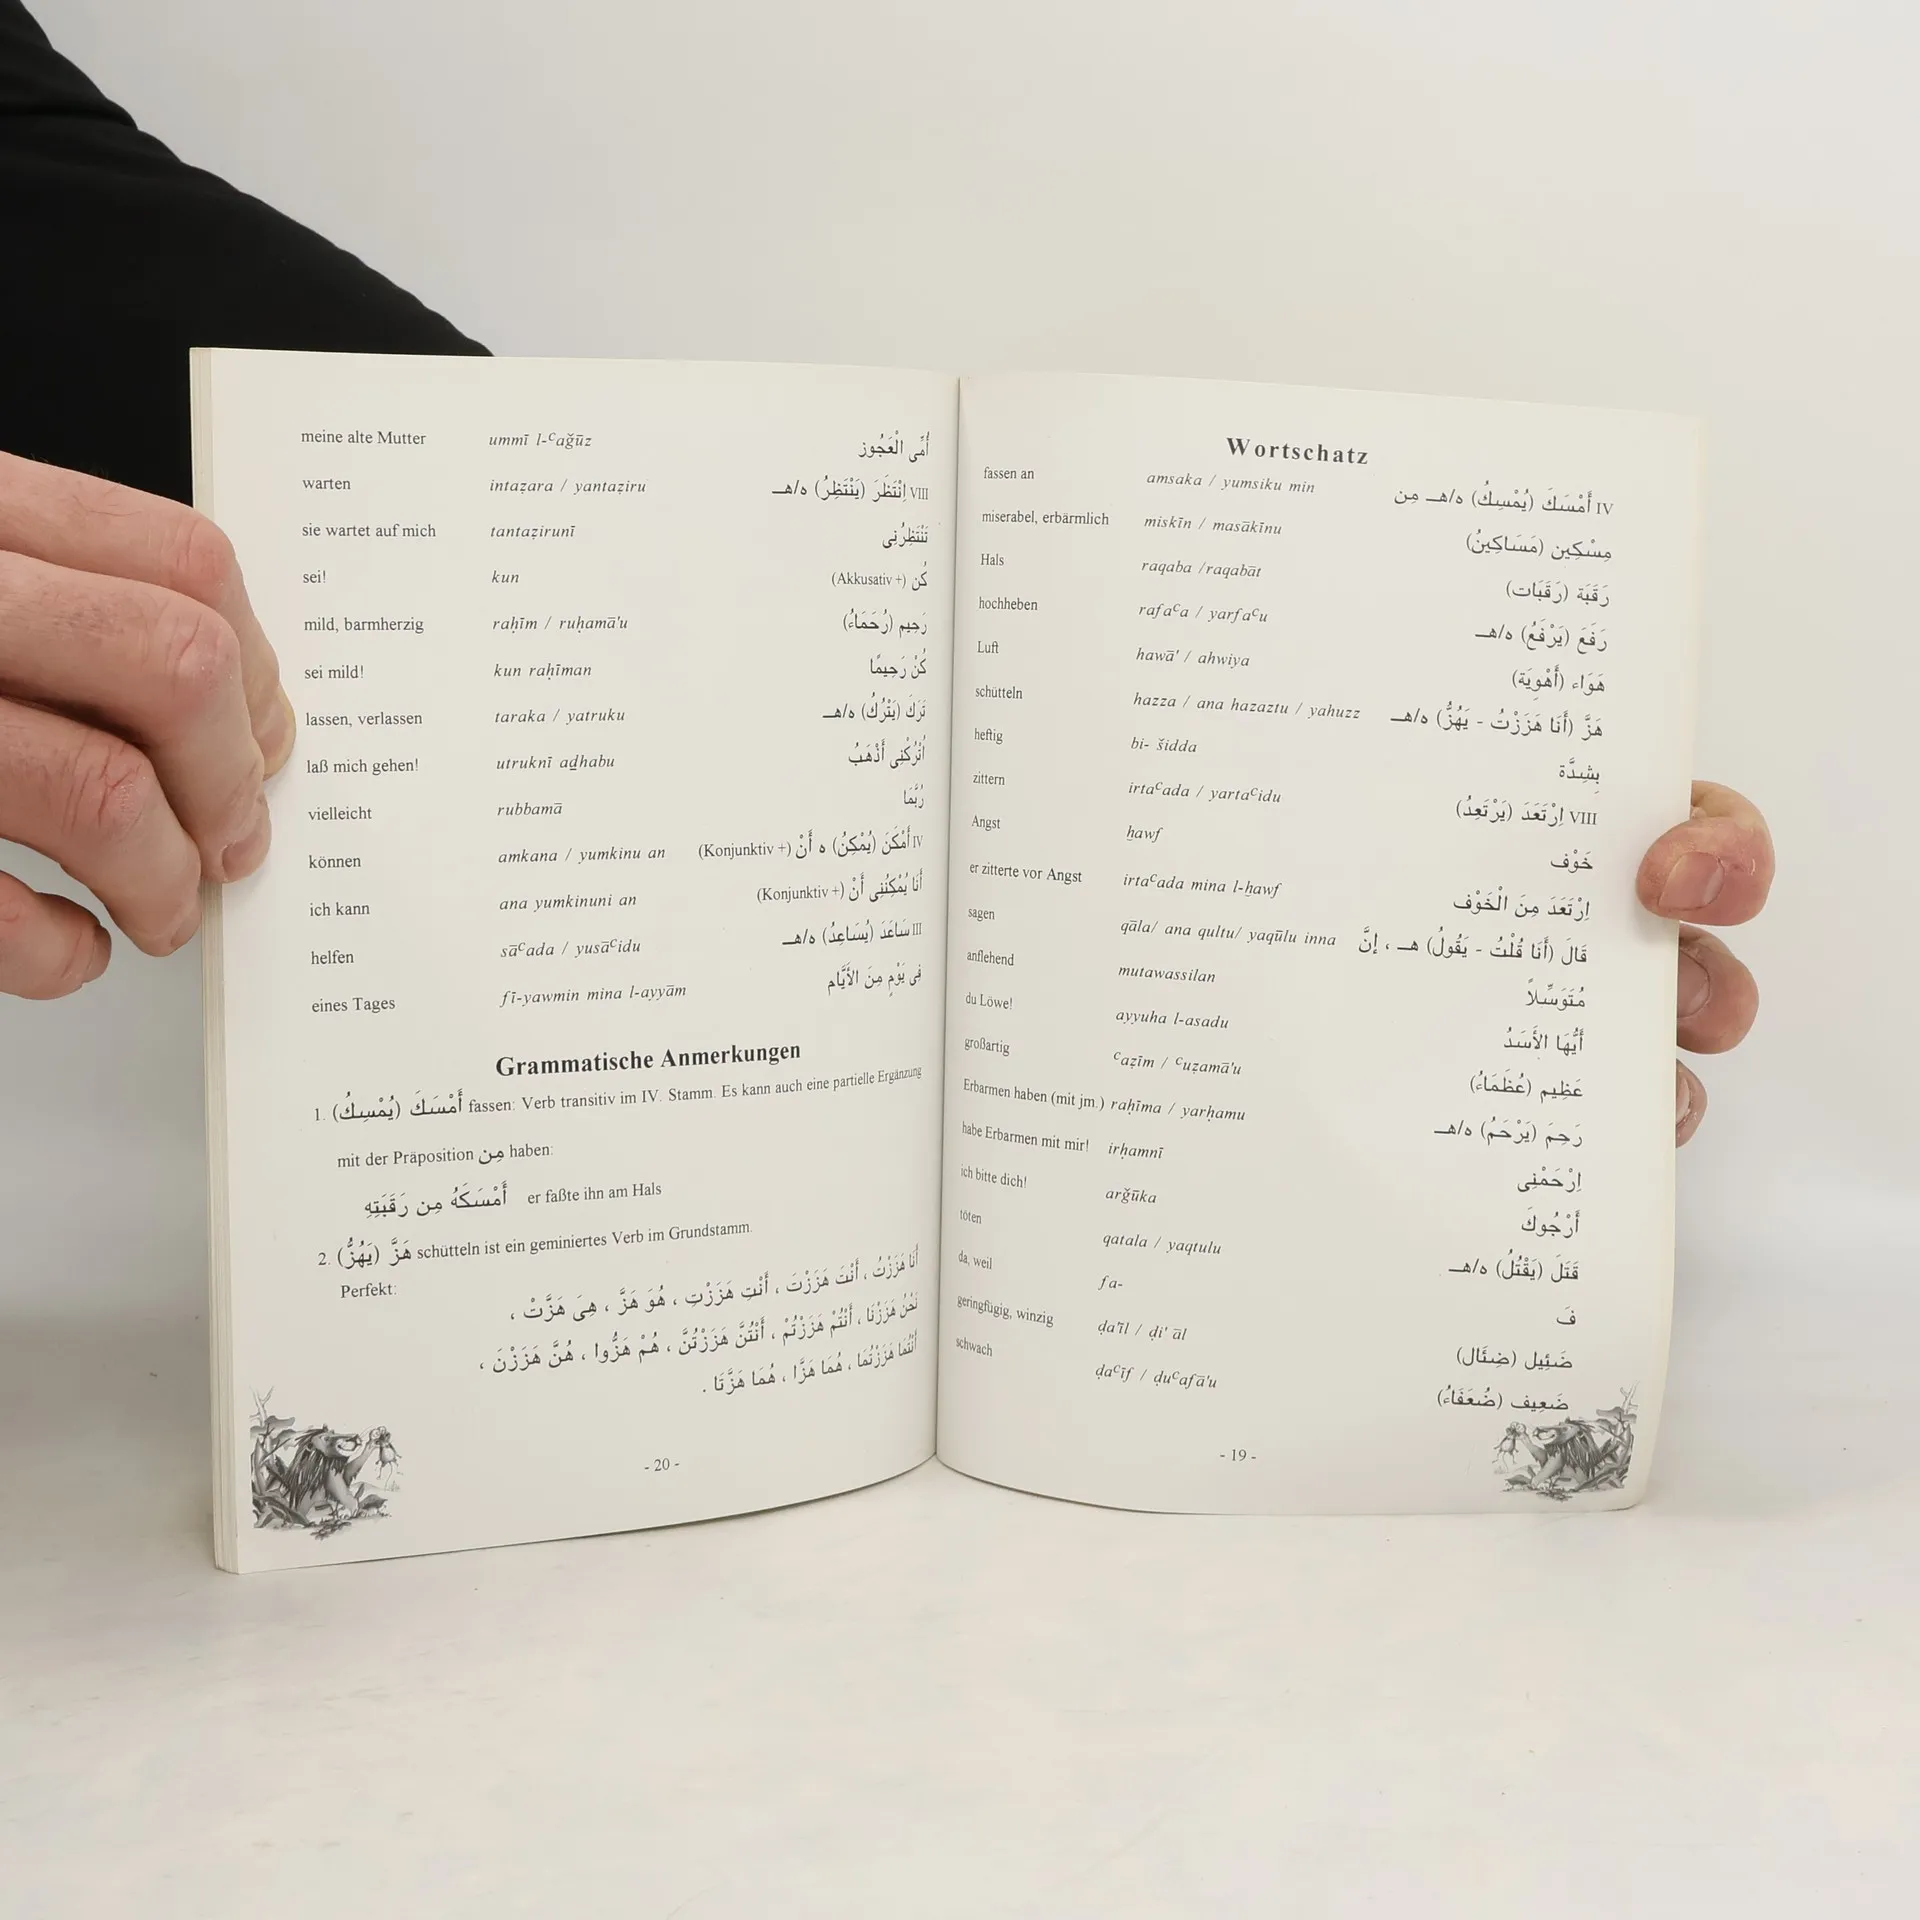 Wortschatz
fassen an amsaka / yumsiku min IV أَمْسَكَ (يُمْسِكُ) ه/هـ مِن
miserabel, erbärmlich miskīn / masākīnu مِسْكِين (مَسَاكِينُ)
Hals raqaba /raqabāt رَقَبَة (رَقَبَات)
hochheben rafaᶜa / yarfaᶜu رَفَعَ (يَرْفَعُ) ه/هـ
Luft hawā' / ahwiya هَوَاء (أَهْوِيَة)
schütteln hazza / ana hazaztu / yahuzz هَزَّ (أَنَا هَزَزْتُ - يَهُزُّ) ه/هـ
heftig bi- šidda بِشِدَّة
zittern irtaᶜada / yartaᶜidu VIII اِرْتَعَدَ (يَرْتَعِدُ)
Angst ḫawf خَوْف
er zitterte vor Angst irtaᶜada mina l-ḫawf اِرْتَعَدَ مِنَ الْخَوْف
sagen qāla/ ana qultu/ yaqūlu inna قَالَ (أَنَا قُلْتُ - يَقُولُ) هـ ، إنَّ
anflehend mutawassilan مُتَوَسِّلاً
du Löwe! ayyuha l-asadu أَيُّهَا الأَسَدُ
großartig ᶜaẓīm / ᶜuẓamā'u عَظِيم (عُظَمَاءُ)
Erbarmen haben (mit jm.) raḥima / yarḥamu رَحِمَ (يَرْحَمُ) ه/هـ
habe Erbarmen mit mir! irḥamnī اِرْحَمْنِى
ich bitte dich! arǧūka أَرْجُوكَ
töten qatala / yaqtulu قَتَلَ (يَقْتُلُ) ه/هـ
da, weil fa- فَ
geringfügig, winzig ḍa'īl / ḍi' āl ضَئِيل (ضِئَال)
schwach ḍaᶜīf / ḍuᶜafā'u ضَعِيف (ضُعَفَاءُ)
- 19 -
meine alte Mutter ummī l-ᶜaǧūz أُمِّى الْعَجُوز
warten intaẓara / yantaẓiru VIII اِنْتَظَرَ (يَنْتَظِرُ) ه/هـ
sie wartet auf mich tantaẓirunī تَنْتَظِرُنِى
sei! kun كُن (+ Akkusativ)
mild, barmherzig raḥīm / ruḥamā'u رَحِيم (رُحَمَاءُ)
sei mild! kun raḥīman كُنْ رَحِيمًا
lassen, verlassen taraka / yatruku تَرَكَ (يَتْرُكُ) ه/هـ
laß mich gehen! utruknī aḏhabu اُتْرُكْنِى أَذْهَبُ
vielleicht rubbamā رُبَّمَا
können amkana / yumkinu an IV أَمْكَنَ (يُمْكِنُ) ه أَنْ (+ Konjunktiv)
ich kann ana yumkinuni an أَنَا يُمْكِنُنِى أَنْ (+ Konjunktiv)
helfen sāᶜada / yusāᶜidu III سَاعَدَ (يُسَاعِدُ) ه/هـ
eines Tages fī-yawmin mina l-ayyām فِى يَوْمٍ مِنَ الأَيَّام
Grammatische Anmerkungen
1. أَمْسَكَ (يُمْسِكُ) fassen: Verb transitiv im IV. Stamm. Es kann auch eine partielle Ergänzung
mit der Präposition مِن haben:
أَمْسَكَهُ مِن رَقَبَتِهِ er faßte ihn am Hals
2. هَزَّ (يَهُزُّ) schütteln ist ein geminiertes Verb im Grundstamm.
Perfekt:
أَنَا هَزَزْتُ ، أَنْتَ هَزَزْتَ ، أَنْتِ هَزَزْتِ ، هُوَ هَزَّ ، هِىَ هَزَّتْ ،
نَحْنُ هَزَزْنَا ، أَنْتُمْ هَزَزْتُمْ ، أَنْتُنَّ هَزَزْتُنَّ ، هُمْ هَزُّوا ، هُنَّ هَزَزْنَ ،
أَنْتُمَا هَزَزْتُمَا ، هُمَا هَزَّا ، هُمَا هَزَّتَا .
- 20 -